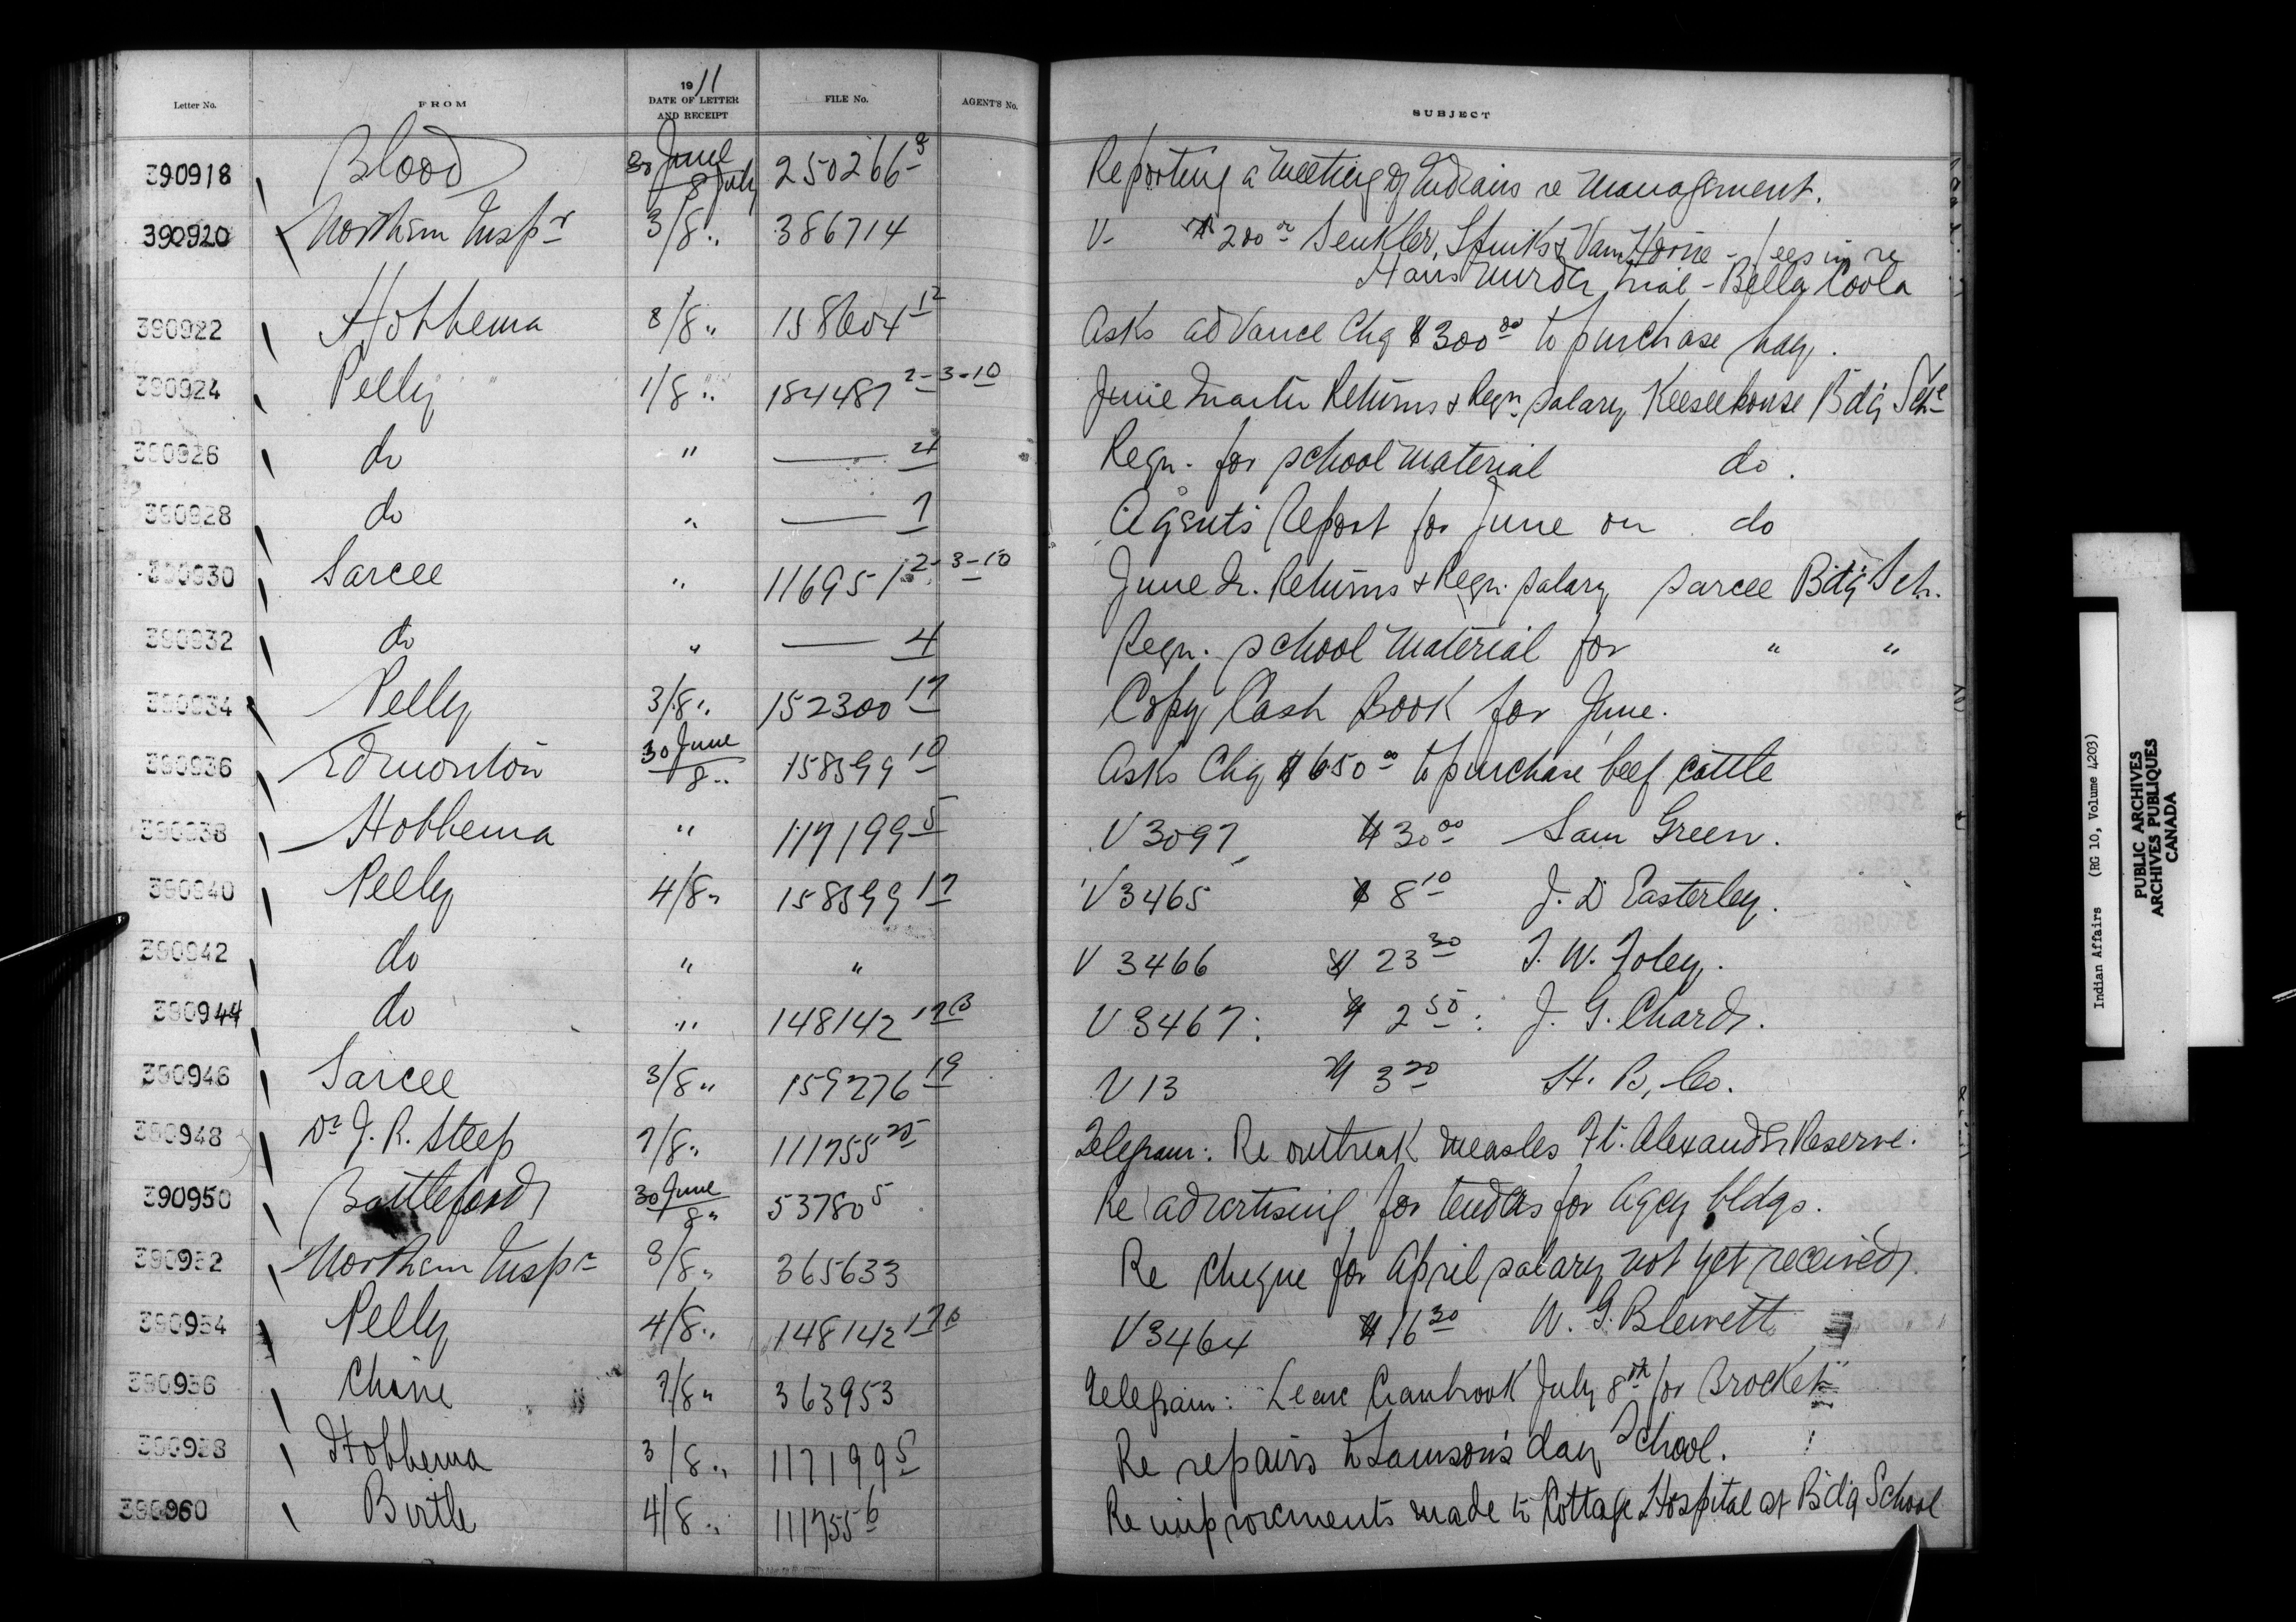 Letter No. FROM 1911 DATE OF LETTER AND RECEIPT FILE No. AGENT'S No. SUBJECT
390918 Blood 30 June / 8 July 250266-3 Reporting a Meeting of Indians re Management.
390920 Northern Inspr 3/8 " 386714 V- $200 00 Senkler, Spinks & Van Horne - fees in re
Hans Murder trial - Bella Coola
390922 Hobbema 3/8 " 158604 12 Asks advance Chq $300 00 to purchase hay.
390924 Pelly 1/8 " 184487 2-3-10 June Quarter Returns & Reqn. salary Keeseekouse Bdg Schl
390926 do " —— 4 Reqn. for school material do.
390928 do " —— 7 Agent's Report for June on do
390930 Sarcee " 116951 2-3-10 June Qr. Returns & Reqn. salary Sarcee Bdg Sch.
390932 do " —— 4 Reqn. school Material for " "
390934 Pelly 3/8 " 152300 17 Copy Cash Book for June.
390936 Edmonton 30 June / 8 " 158599 10 Asks Chq $650 00 to purchase beef cattle
390938 Hobbema " 117199 5 V 3097 $30 00 Sam Green.
390940 Pelly 4/8 " 158599 17 V 3465 $8 10 J. D Easterley.
390942 do " " V 3466 $23 30 T. W. Foley.
390944 do " 148142 17B V 3467: $2 50: J. G. Chard.
390946 Sarcee 3/8 " 159276 19 V 13 $3 20 H. B. Co.
390948 Dr J. R. Steep 7/8 " 111755 25 Telegram: Re outbreak measles Ft. Alexander Reserve.
390950 Battleford 30 June / 8 " 53780 5 Re advertising for tenders for Agcy bldgs.
390952 Northern Inspr 3/8 " 365633 Re cheque for April salary not yet received.
390954 Pelly 4/8 " 148142 17B V 3464 $16 30 W. G. Blewett
390956 Chisne 7/8 " 363953 Telegram: Leave Cranbrook July 8th for Brocket
390958 Hobbema 3/8 " 117199 5 Re repairs to Samson's day School.
390960 Birtle 4/8 " 111755 6 Re improvements made to Cottage Hospital at Bdg School
Indian Affairs (RG 10, Volume 4203)
PUBLIC ARCHIVES
ARCHIVES PUBLIQUES
CANADA